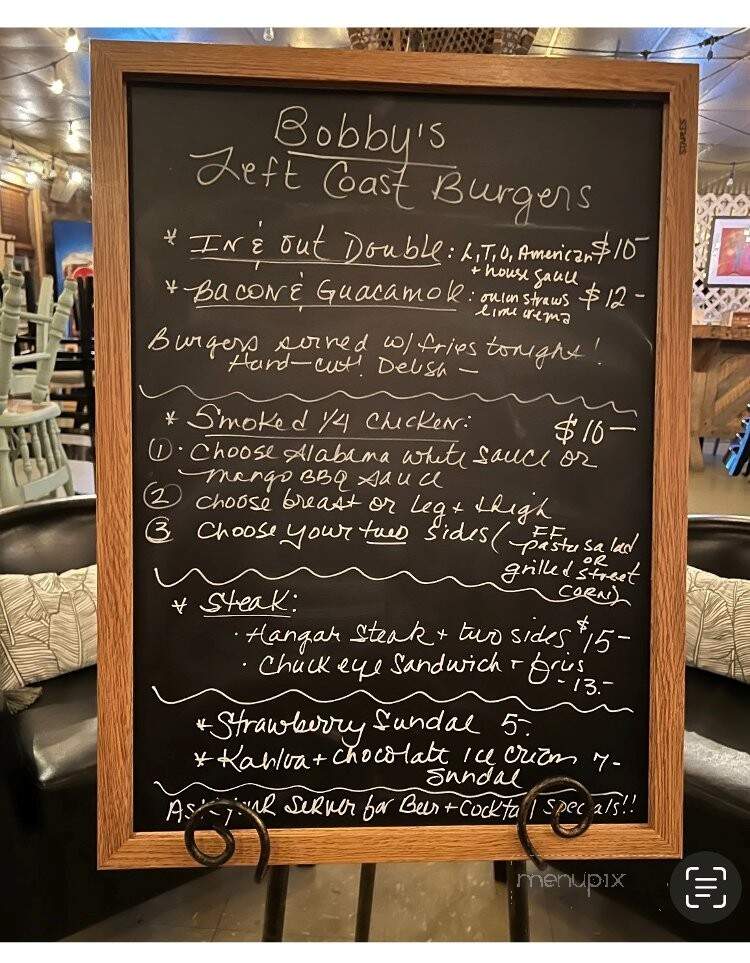 Bobby's
Left Coast Burgers
STAPLES
* IN & OUT Double: L,T,O, American $10-
+ house sauce
* BACON & Guacamole: onion straws $12-
lime crema
Burgers served w/ fries tonight!
Hard-cut! Delish -
* Smoked 1/4 Chicken: $10-
① · Choose Alabama white sauce or
mango BBQ sauce
② choose breast or leg + thigh
③ Choose your two sides ( FF
pasta salad
OR
grilled street
CORN)
* Steak:
· Hangar Steak + two sides $15-
· Chuck eye Sandwich + fries
- 13.-
* Strawberry Sundae 5-
* Kahlua + chocolate ice cream 7-
Sundae
Ask your server for Beer + Cocktail specials!!
menupix